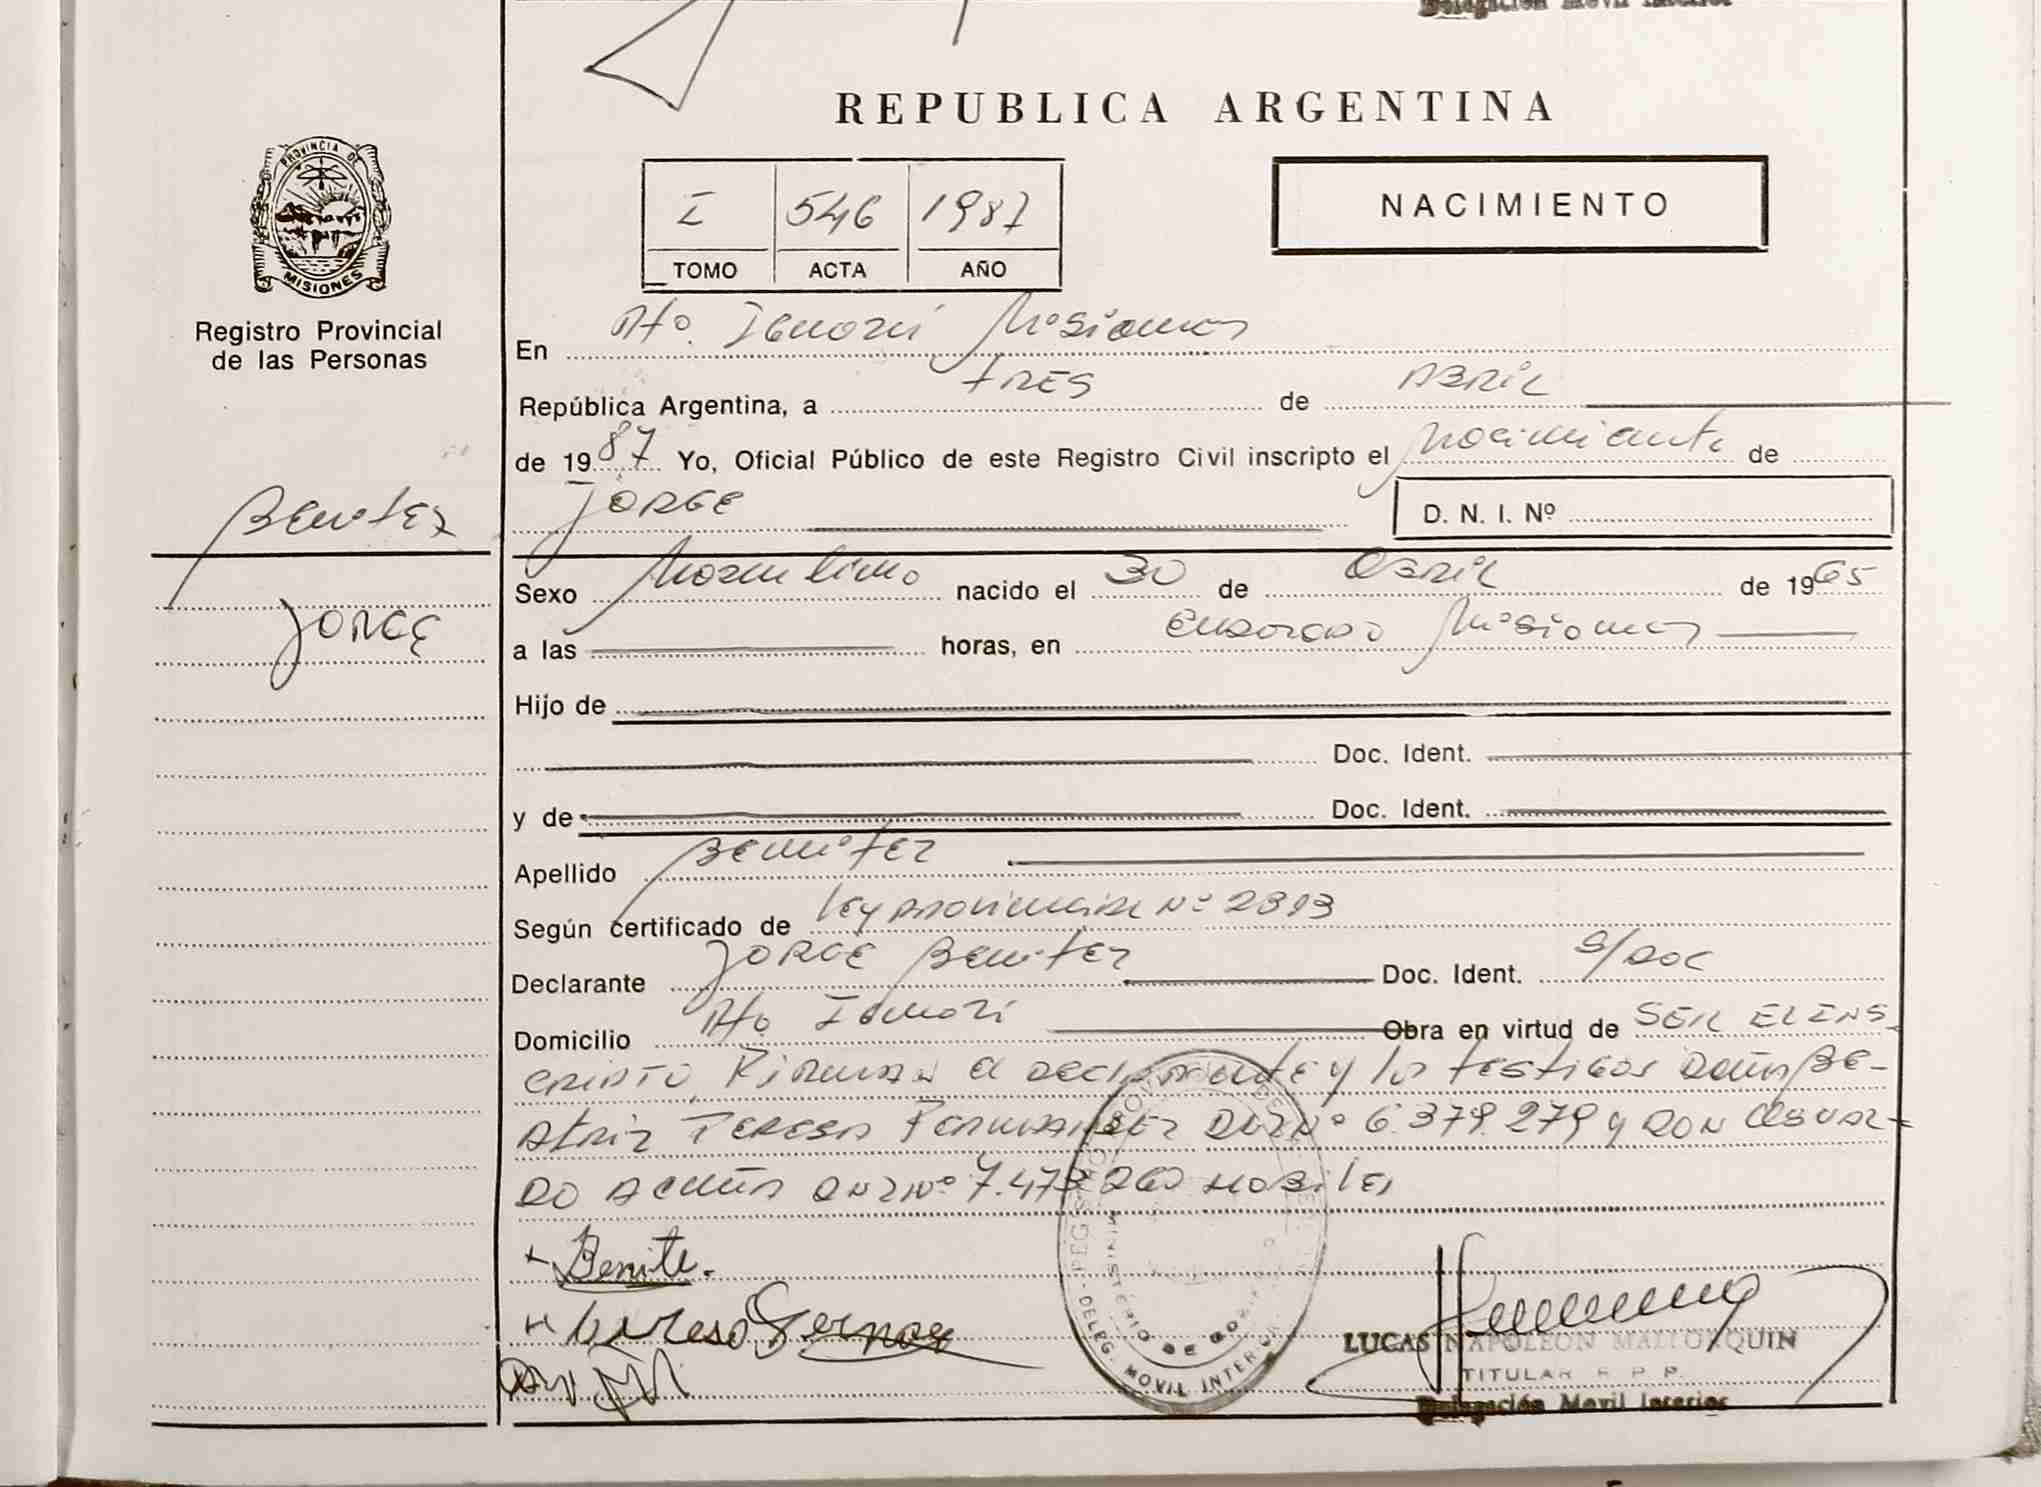 Delegación Movil Interior
REPUBLICA ARGENTINA
PROVINCIA DE
MISIONES
Registro Provincial
de las Personas
I 546 1987
TOMO ACTA AÑO
NACIMIENTO
En Pto. Iguazú Misiones
República Argentina, a tres de ABRIL
de 1987 Yo, Oficial Público de este Registro Civil inscripto el Nacimiento de
JORGE
D. N. I. Nº
Benitez
JORGE
Sexo Masculino nacido el 30 de ABRIL de 1965
a las horas, en Eldorado Misiones
Hijo de
Doc. Ident.
y de Doc. Ident.
Apellido Benitez
Según certificado de Ley provincial Nº 2393
Declarante JORGE Benitez Doc. Ident. S/DOC
Domicilio Pto Iguazú Obra en virtud de SER EL INS
CRIPTO, Firman el declarante y los testigos doña Be-
atriz Teresa Fernandez DNI Nº 6.379.279 y DON Osval-
DO ACUÑA DNI Nº 7.473 habiles
Benite.
Teresa Fernan
DELEG. MOVIL INTERIOR
MINISTERIO DE GOBIERNO
LUCAS NAPOLEON MALLORQUIN
TITULAR R. P. P.
Delegación Movil Interior